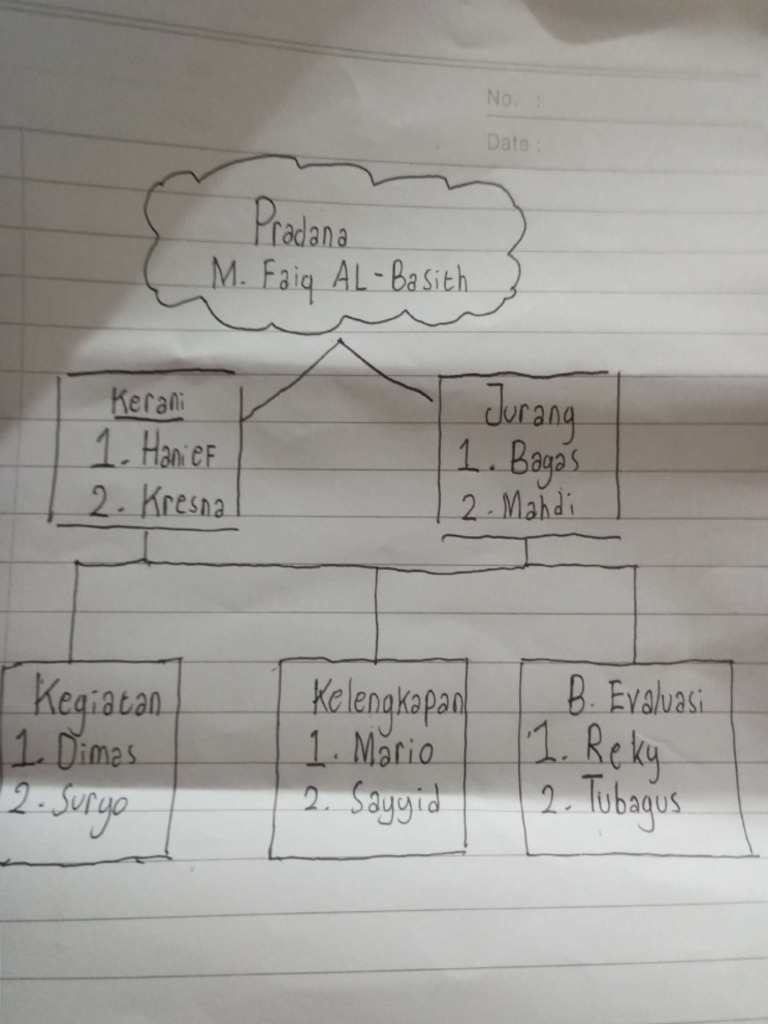 No. :
Date :
Pradana
M. Faiq AL-Basith
Kerani
1. Hanief
2. Kresna
Jurang
1. Bagas
2. Mahdi
Kegiatan
1. Dimas
2. Suryo
Kelengkapan
1. Mario
2. Sayyid
B. Evaluasi
1. Reky
2. Tubagus